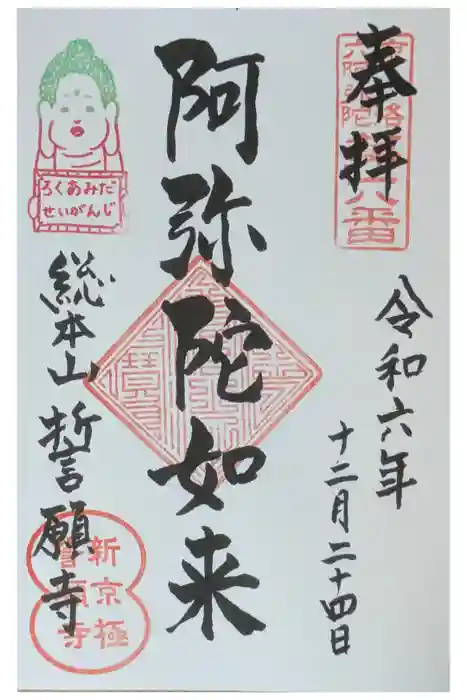 奉拝
令和六年
十二月二十四日
阿弥陀如来
ろくあみだ
せいがんじ
総本山 誓願寺
新京極
誓願寺